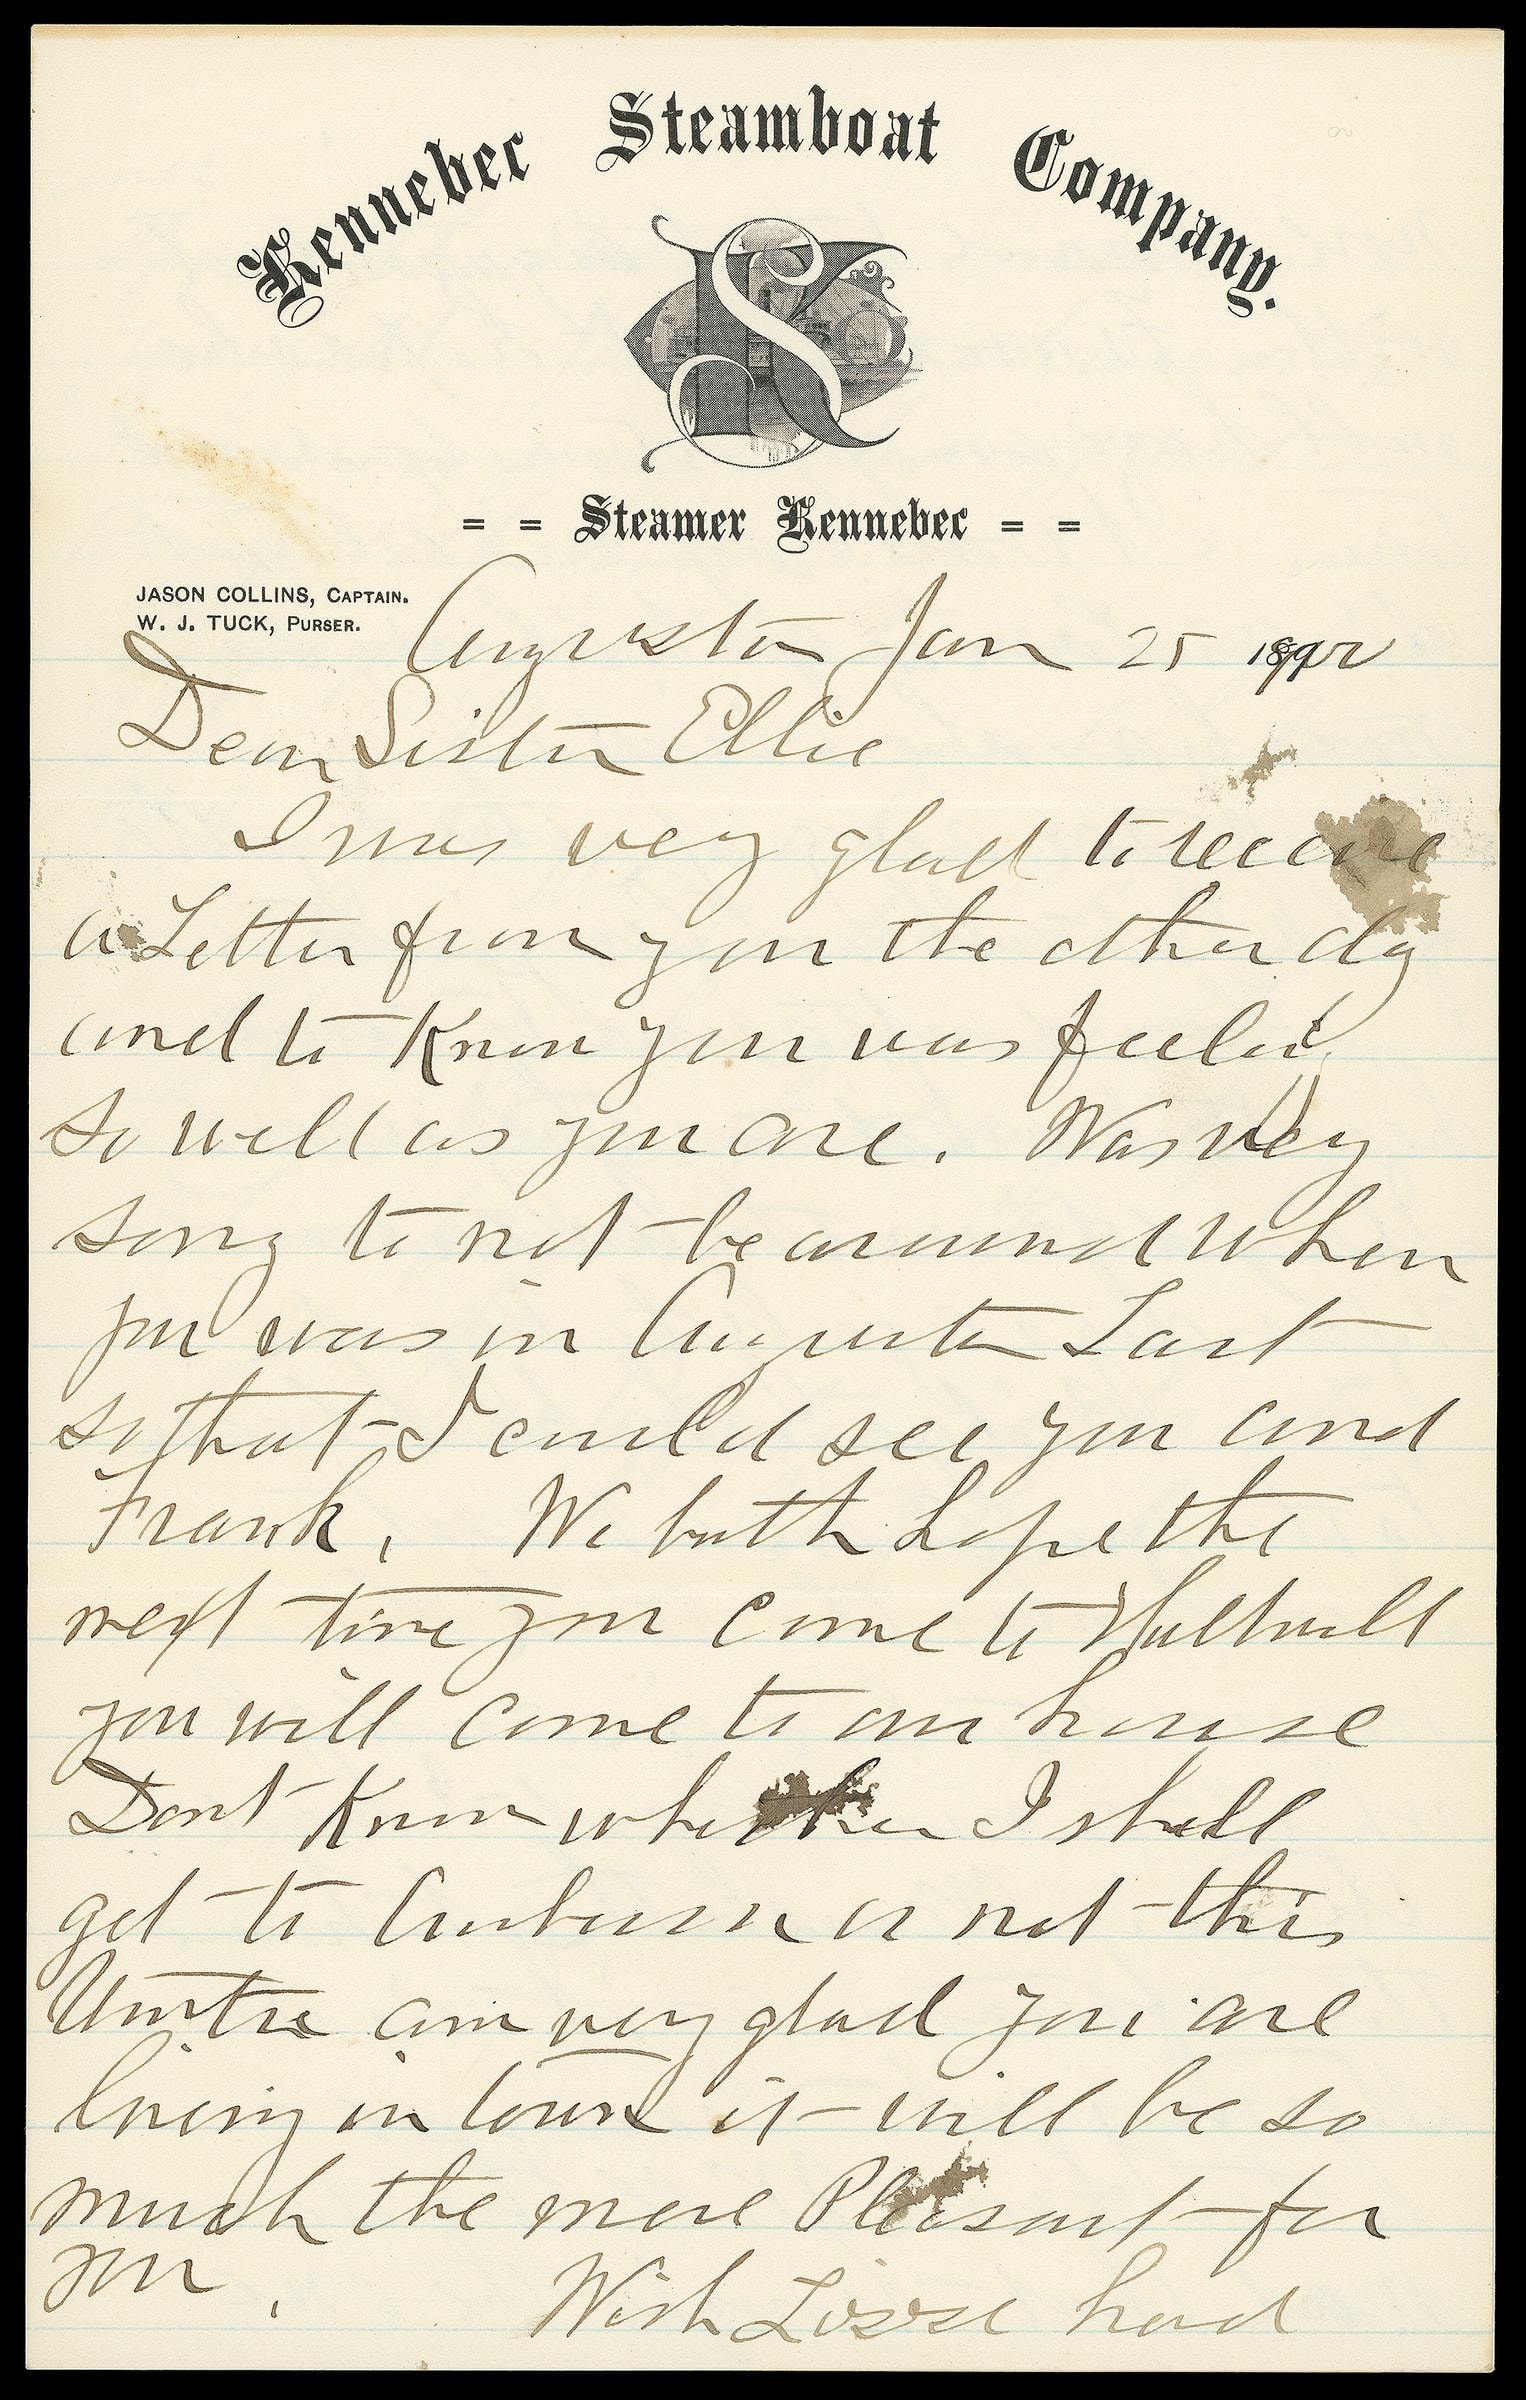 Kennebec Steamboat Company.
KS
= = Steamer Kennebec = =
JASON COLLINS, CAPTAIN.
W. J. TUCK, PURSER.
Augusta Jan 25 1892
Dear Sister Ellie
I was very glad to receive
a Letter from you the other day
and to Know you was feeling
so well as you are. Was very
sorry to not be around when
you was in Augusta Last
so that I could see you and
Frank. We both hope the
next time you come to Hallowell
you will come to our house
Dont Know whether I shall
get to Auburn or not this
Winter am very glad you are
living in town it will be so
much the more Pleasant for
you. Wish Lizzie had